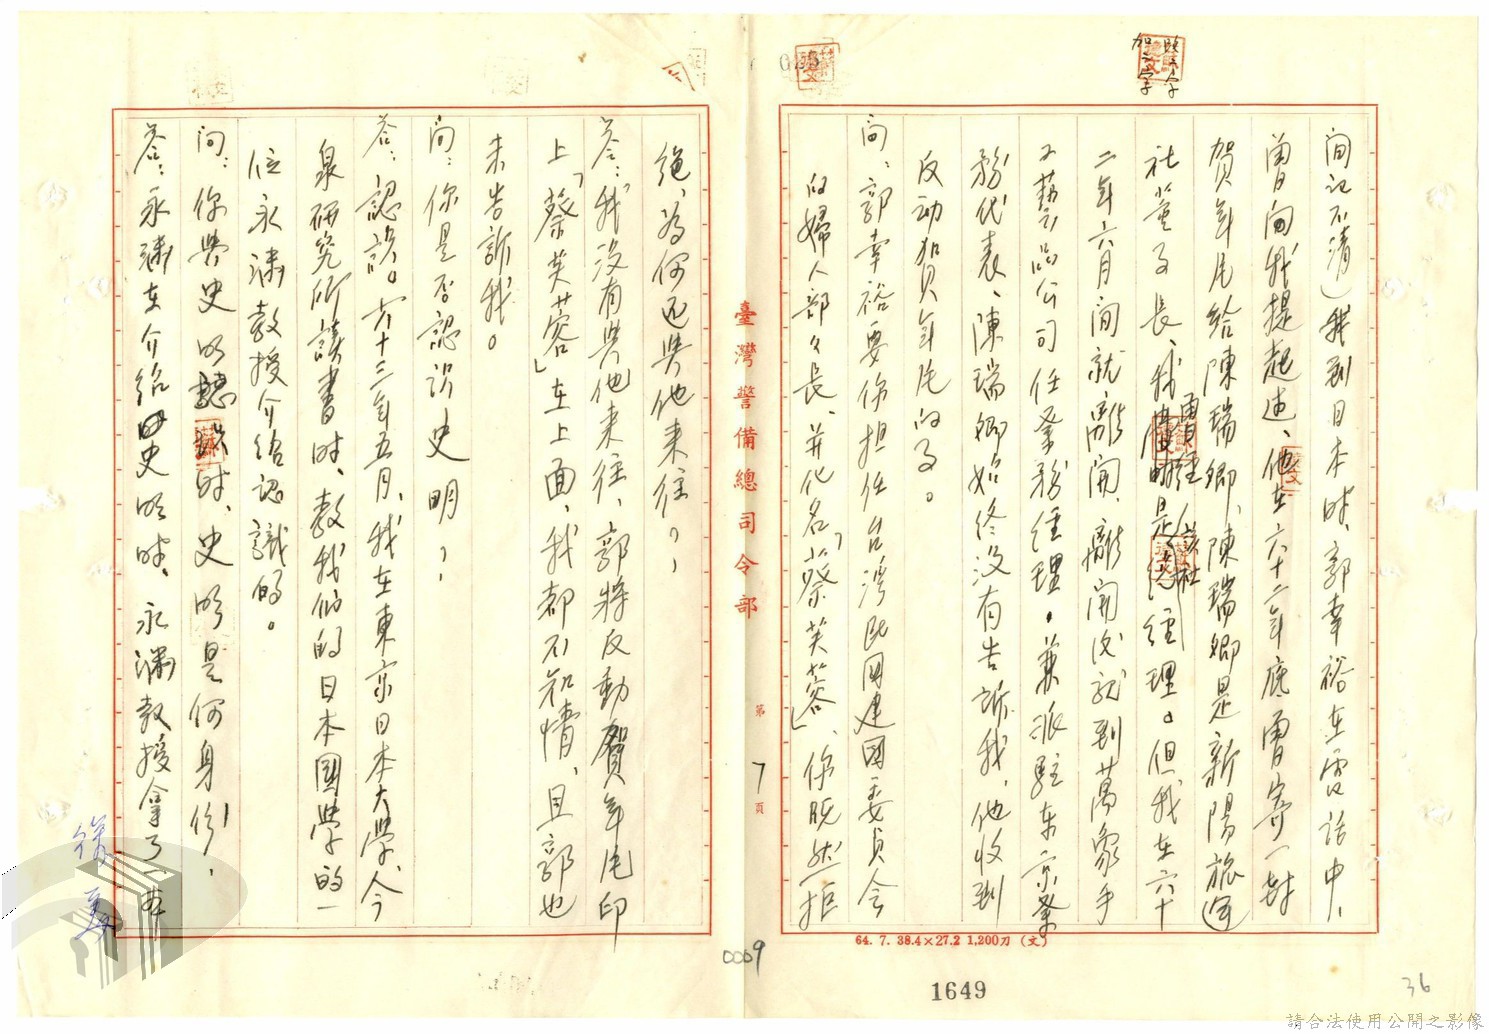 間記不清）我到日本時、郭幸裕在電話中、
曾向我提起过、他在六十二年底曾寄一封
賀年片給陳瑞卿、陳瑞卿是新陽旅運
社董事長、我曾經是該社經理。但我在六十
二年六月間就離開、離開後就到萬象手
工藝品公司任業務經理。兼派駐东京業
務代表、陳瑞卿始終沒有告訴我、他收到
反动賀年片的事。
問：郭幸裕要你担任台湾民国建國委員会
的婦人部々長、并化名「蔡芙蓉」、你既然拒
絕、為何还與他來往？
答：我沒有與他來往、郭將反動賀年片印
上「蔡芙蓉」在上面、我都不知情、且郭也
未告訴我。
問：你是否認识史明？
答：認識。六十三年五月、我在東京日本大學、今
泉研究所讀書時、教我們的日本國學的一
位永瀬教授介绍認識的。
問：你與史明認識時、史明是何身份？
答：永瀬在介紹史明時、永瀬教授拿了一本
臺灣警備總司令部
第7頁
加三字
64. 7. 38.4×27.2 1,200刀（文）
0009
1649
36
請合法使用公開之影像